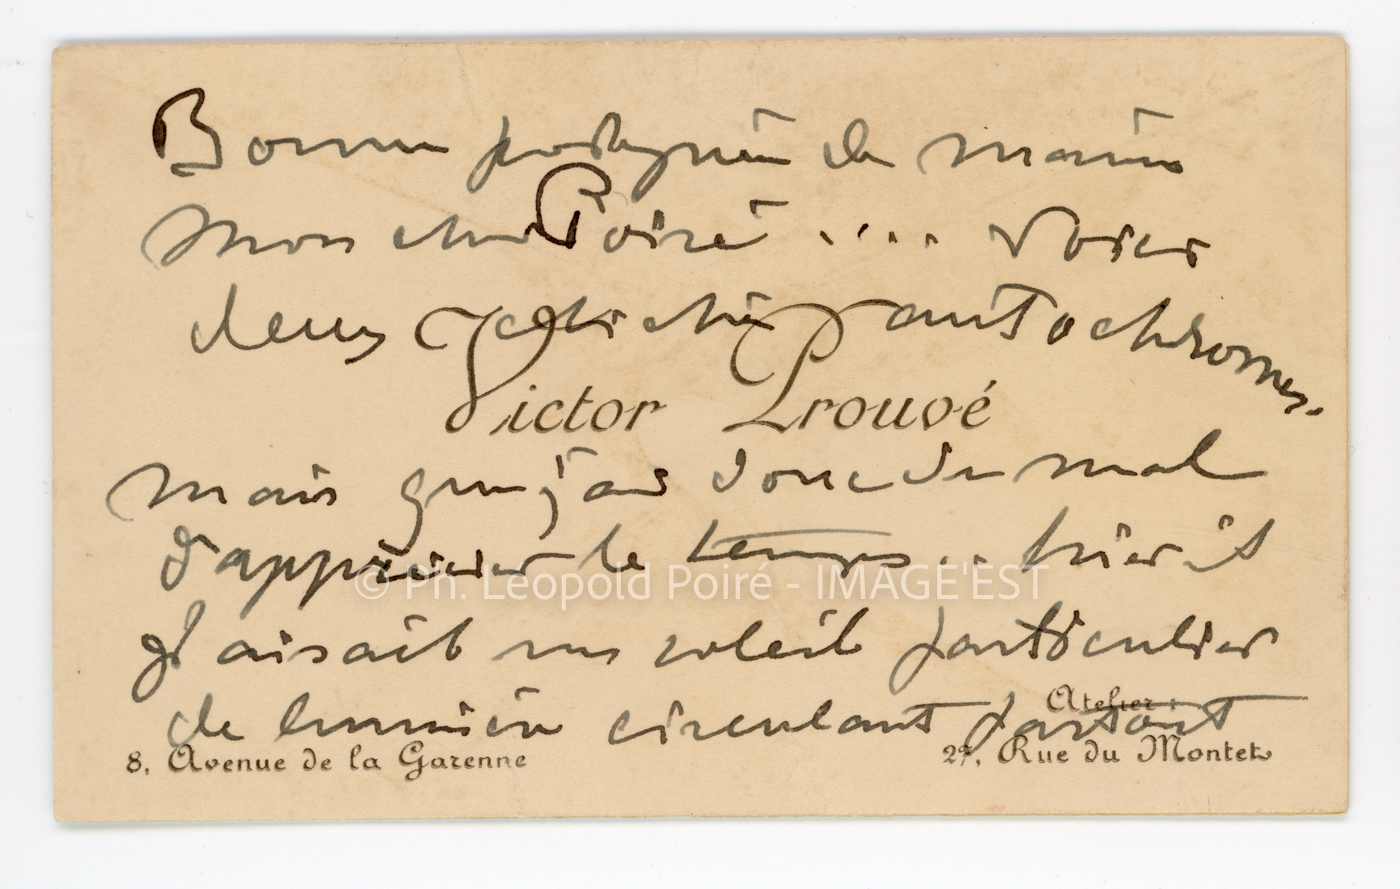 Bonne poignée de mains
mon cher Poiré .... Voici
deux clichés autochromes.
Victor Prouvé
mais que j'ai donc du mal
d'apprécier le temps... hier il
faisait un soleil particulier
© Ph. Léopold Poiré - IMAGE'EST
de lumière circulant partout
Atelier :
8, Avenue de la Garenne
29, Rue du Montet